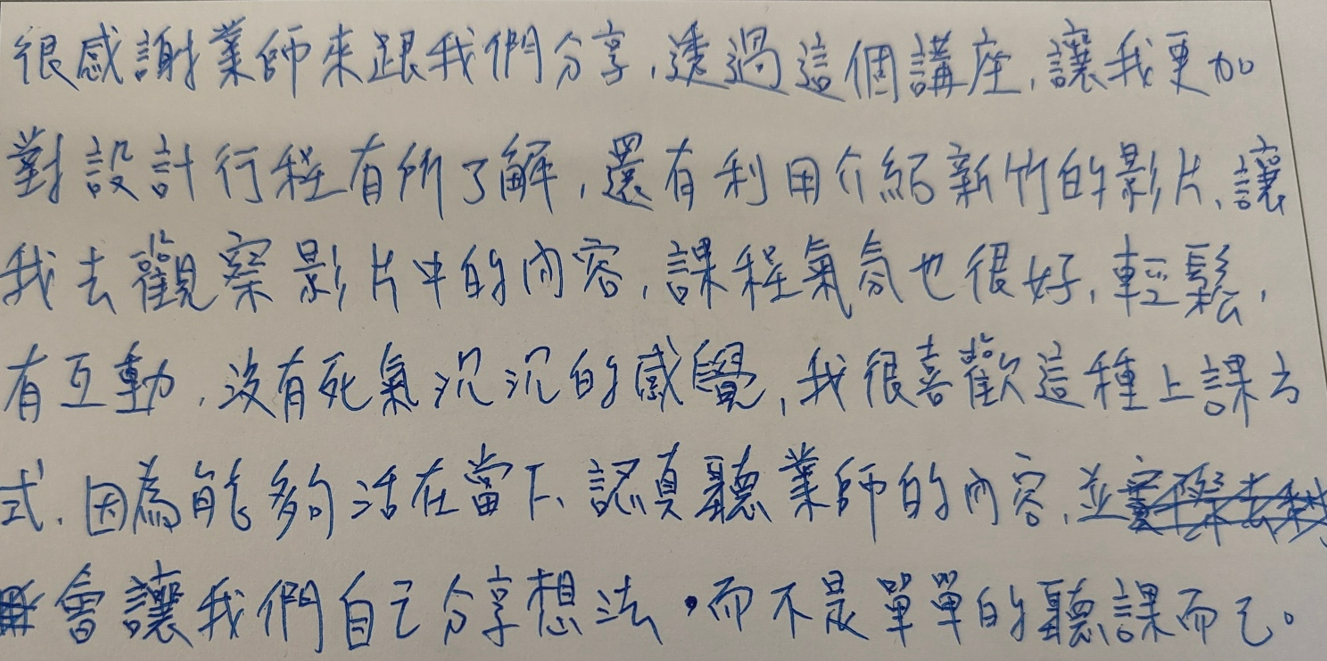 很感謝業師來跟我們分享,透過這個講座,讓我更加
對設計行程有所了解,還有利用介紹新竹的影片,讓
我去觀察影片中的內容,課程氣氛也很好,輕鬆,
有互動,沒有死氣沉沉的感覺,我很喜歡這種上課方
式,因為能夠活在當下、認真聽業師的內容,並
會讓我們自己分享想法,而不是單單的聽課而已。